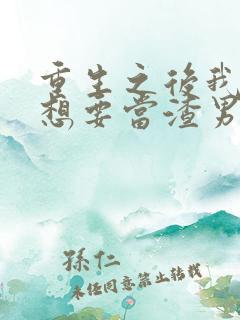 重生之後我
想要當渣男
孫仁
未經同意禁止轉載